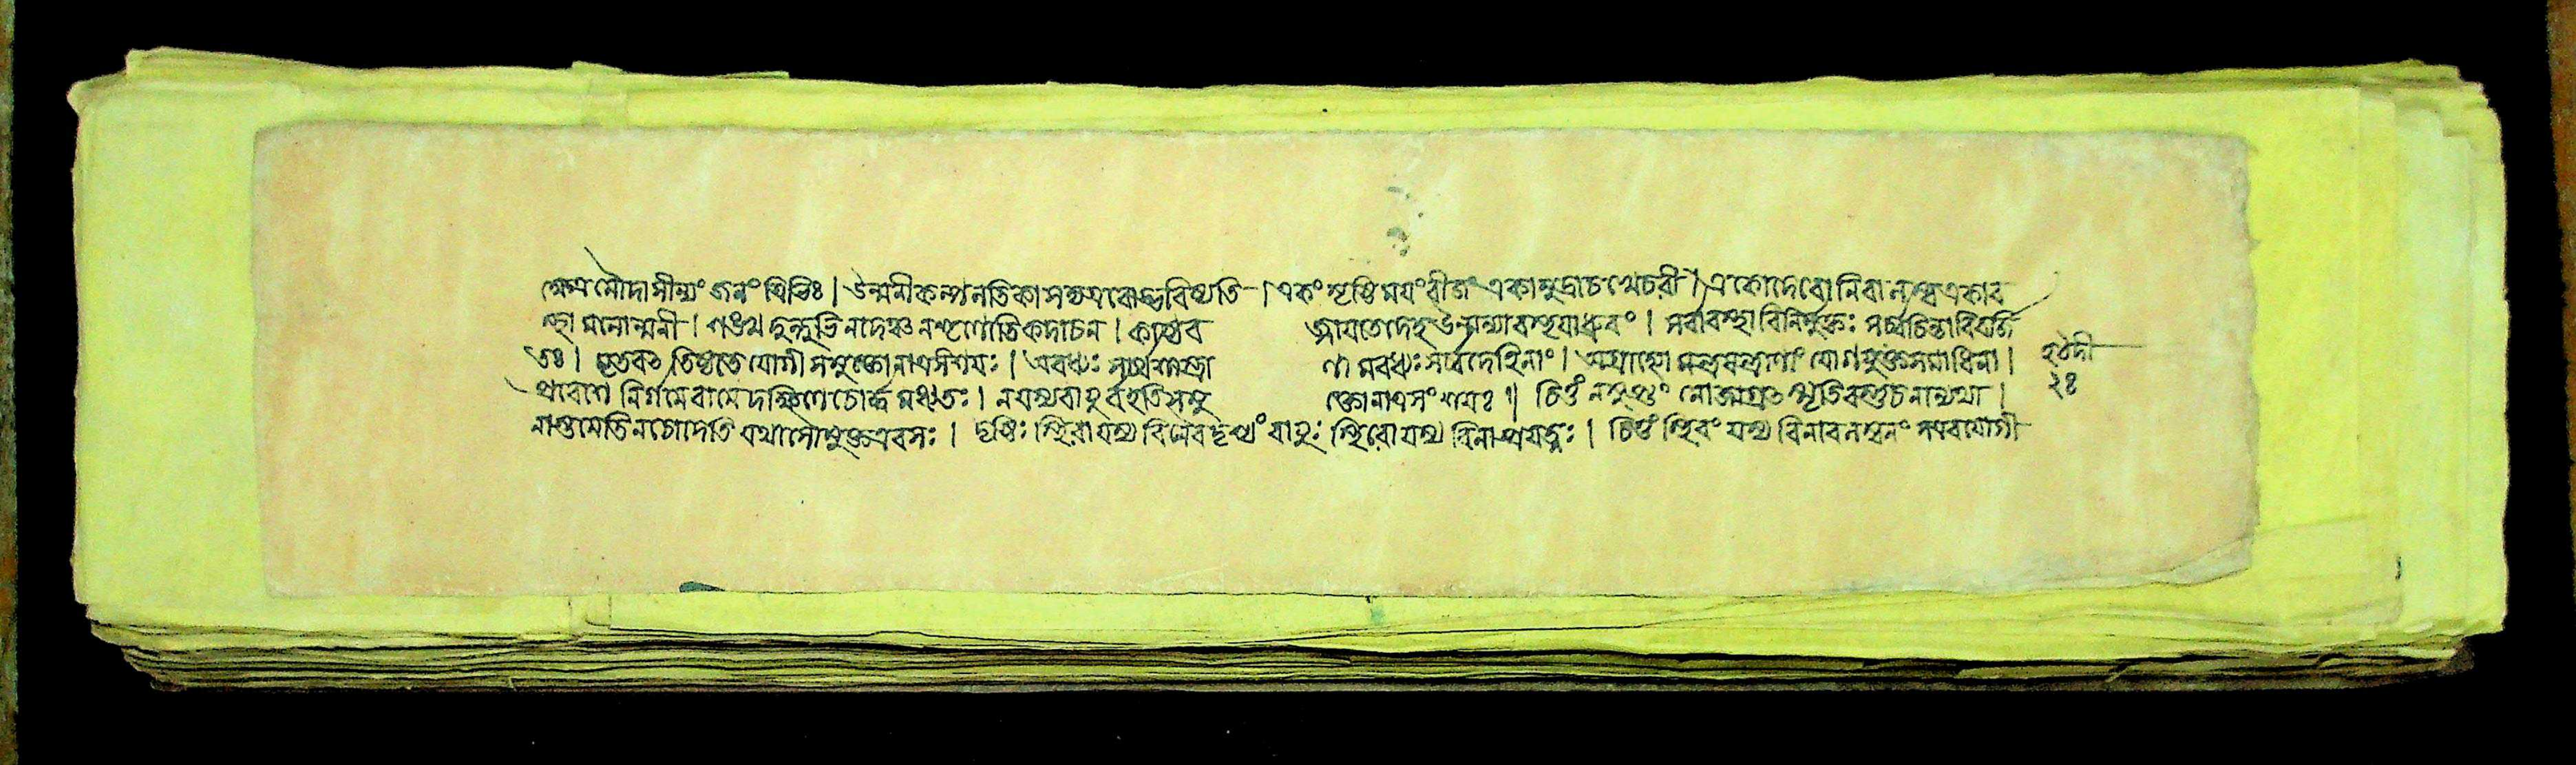 ক্ষেত্রমৌদাসীন্যং জলং ত্রিভিঃ। উন্মনীকল্পলতিকা সদ্যএবোদ্ভবিষ্যতি। একং সৃষ্টিময়ং বীজং একামুদ্রাচ খেচরী। একোদেবো নিরালম্ব একাব
স্থা মনোন্মনী। শঙ্খদুন্দুভিনাদঞ্চ নশৃণোতি কদাচন। কাষ্ঠব জ্জায়তে দেহ উন্মন্যাবস্থয়া ধ্রুবং। সর্বাবস্থাবিনির্মুক্তঃ সর্ব্বচিন্তাবিবর্জি
তঃ। মৃতবৎ তিষ্ঠতে যোগী সমুক্তো নাত্রসংশয়ঃ। অবধ্যঃ সর্ব্বশস্ত্রা ণামবধ্যঃ সর্ব্বদেহিনাং। অগ্রাহ্যো মন্ত্রযন্ত্রাণাং যোগীমুক্তসমাধিনা। হঠদী
প্রবেশে নির্গমে বামে দক্ষিণে চোর্দ্ধ মধ্যতঃ। নযস্যবায়ুর্বহতি সমু ক্তো নাত্রসংশয়ঃ॥ চিত্তং নসুপ্তং নোজাগ্রৎ স্মৃতিবস্তুচ নান্যথা। ২৪
নাস্তমেতি নচোদেতি যথাসৌ মুক্তএবসঃ। দৃষ্টিঃ স্থিরা যস্য বিনৈবদৃশ্যং বায়ুঃ স্থিরো যস্য বিনাপ্রযত্নঃ। চিত্তং স্থিরং যস্য বিনাবলম্বনং সএবযোগী